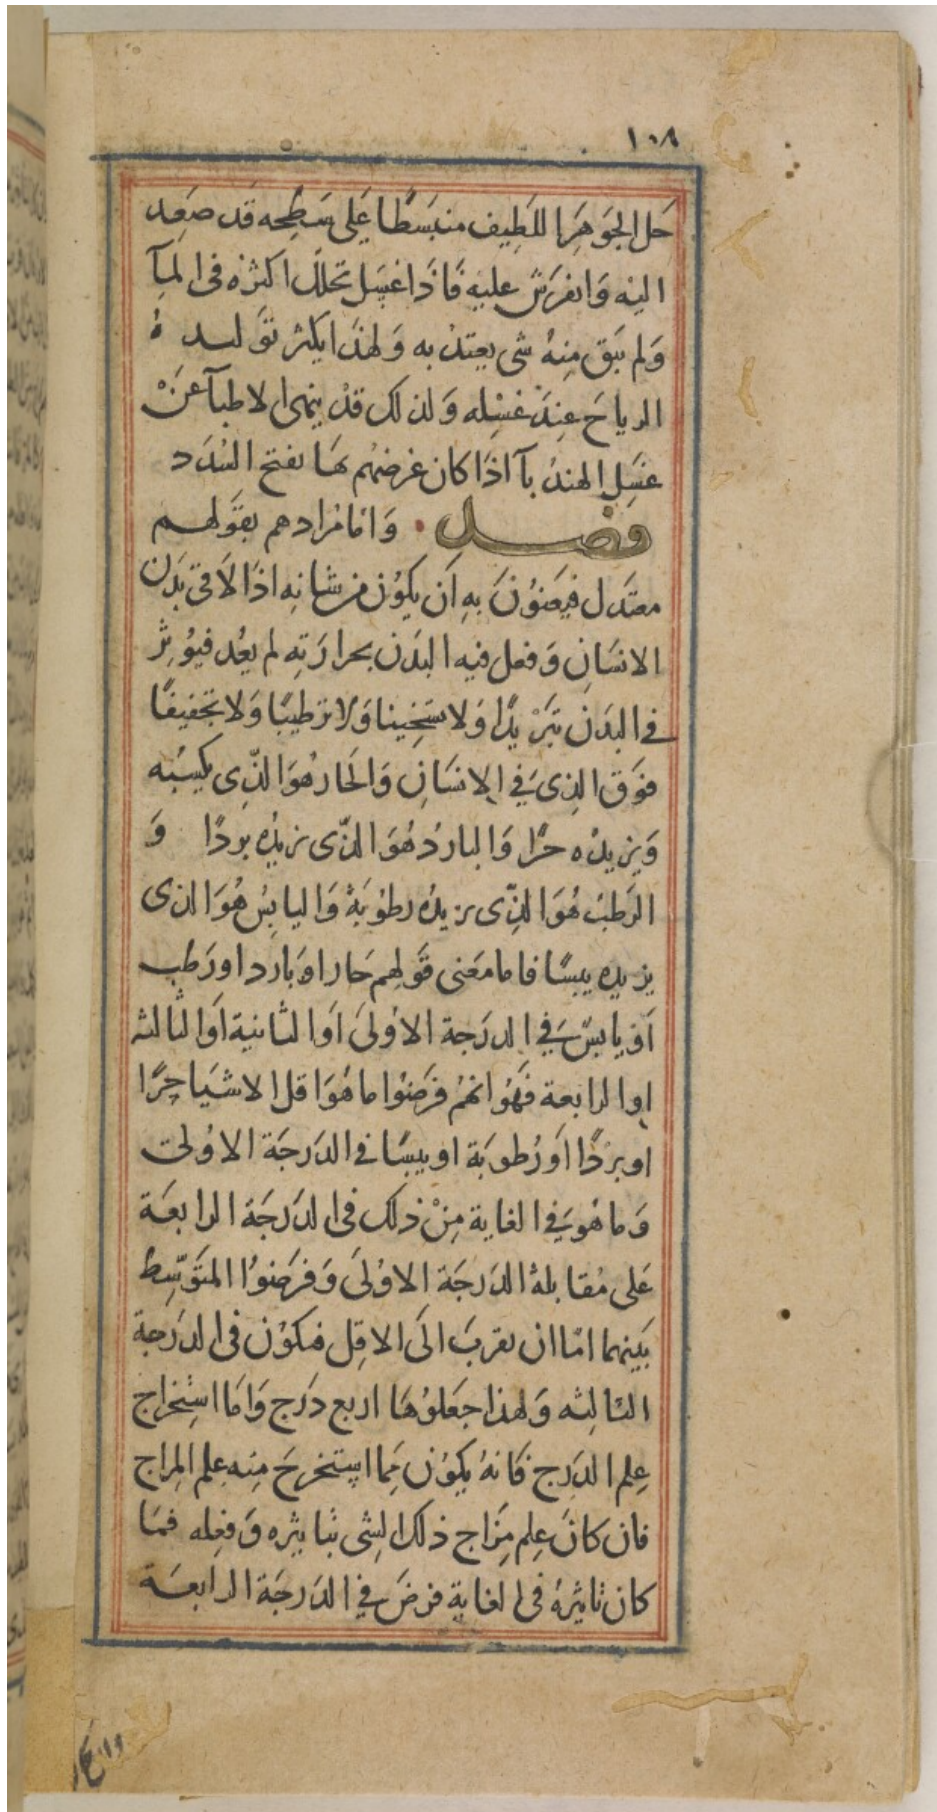 ١٠٨
حَل الجَوهَرا اللَطِيف منبَسَطًا عَلى سَطحِه قَد صَعِد
اليْه وَانفَرَشَ عليهْ فَاذَا غسَِل تحلَّل اكثرْه فى المآ
وَلم يَبَق مِنهُ شى يعتدْ به وَلهذَا يكثر توَلد
الرياحَ عِندَ غسْله وَلذلك قدْ ينهى الاطبآ عَنْ
غسَلِ الهندُبآ اذَا كان غرضهُم بهَا تفتح السُدَد
فصل وَامَا مُرادهم بقَولهم
معتدَل فيَعنوُنَ بهِ اَن يكوُن من شانهِ اذَا لَاقىَ بدَن
الانسَانِ وَفعل فيه البدَن بحرارَتهِ لم يعُد فيُوثِر
في البدَن تبَرْيدًا وَلا تسَخِينا وَلا ترَطيبًا وَلا تجفيفًا
فوَق الذِى في الاِنسَانِ وَالحَار هُوَ الذّى يكسبُه
وَيزيدُه حرًا وَالبارُد هُوَ الذّى يزيدُه بردًا وَ
الرَطبُ هُوَ الذِّى يزيدُه رطوُبَةً وَاليابِسُ هُوَ الذى
يزيده يبسًا فاما معَنى قَولهِم حَار اوَ بَارد او رَطب
اَو يابسٌ في الدرَجة الاوُلىَ اوَ الثانية اوَ الثالثه
اوِ الرابعة فهَوُ انهُم فرَضوُا ما هُوَ اقل الاشياَ حرًا
او برْدًا اوَ رُطوبَة او يبسًا في الدَرجَة الاوُلى
وَما هُوَ في الغاية مِنْ ذلك في الدَرجَة الرابعَة
عَلى مُقابلة الدَرجَة الاوُلىَ وَفرَضوُا المتَوَسِّط
بَينهما امّا ان يقربَ الىَ الاقِل فيكوُن في الدرَجة
الثالِثه وَلهذا جعَلوُهَا اربع دَرج وَامَا استِخراج
عِلِم الدَرج فانهُ يكوُن مِمّا اِستخرِجَ مِنه عِلم المزاج
فان كانَ عِلم مِزاج ذلك الشِى بتاثيره وَفعِله فمَا
كان تاثيرهُ في الغاية فرضَ في الدَرجَة الرابعَة